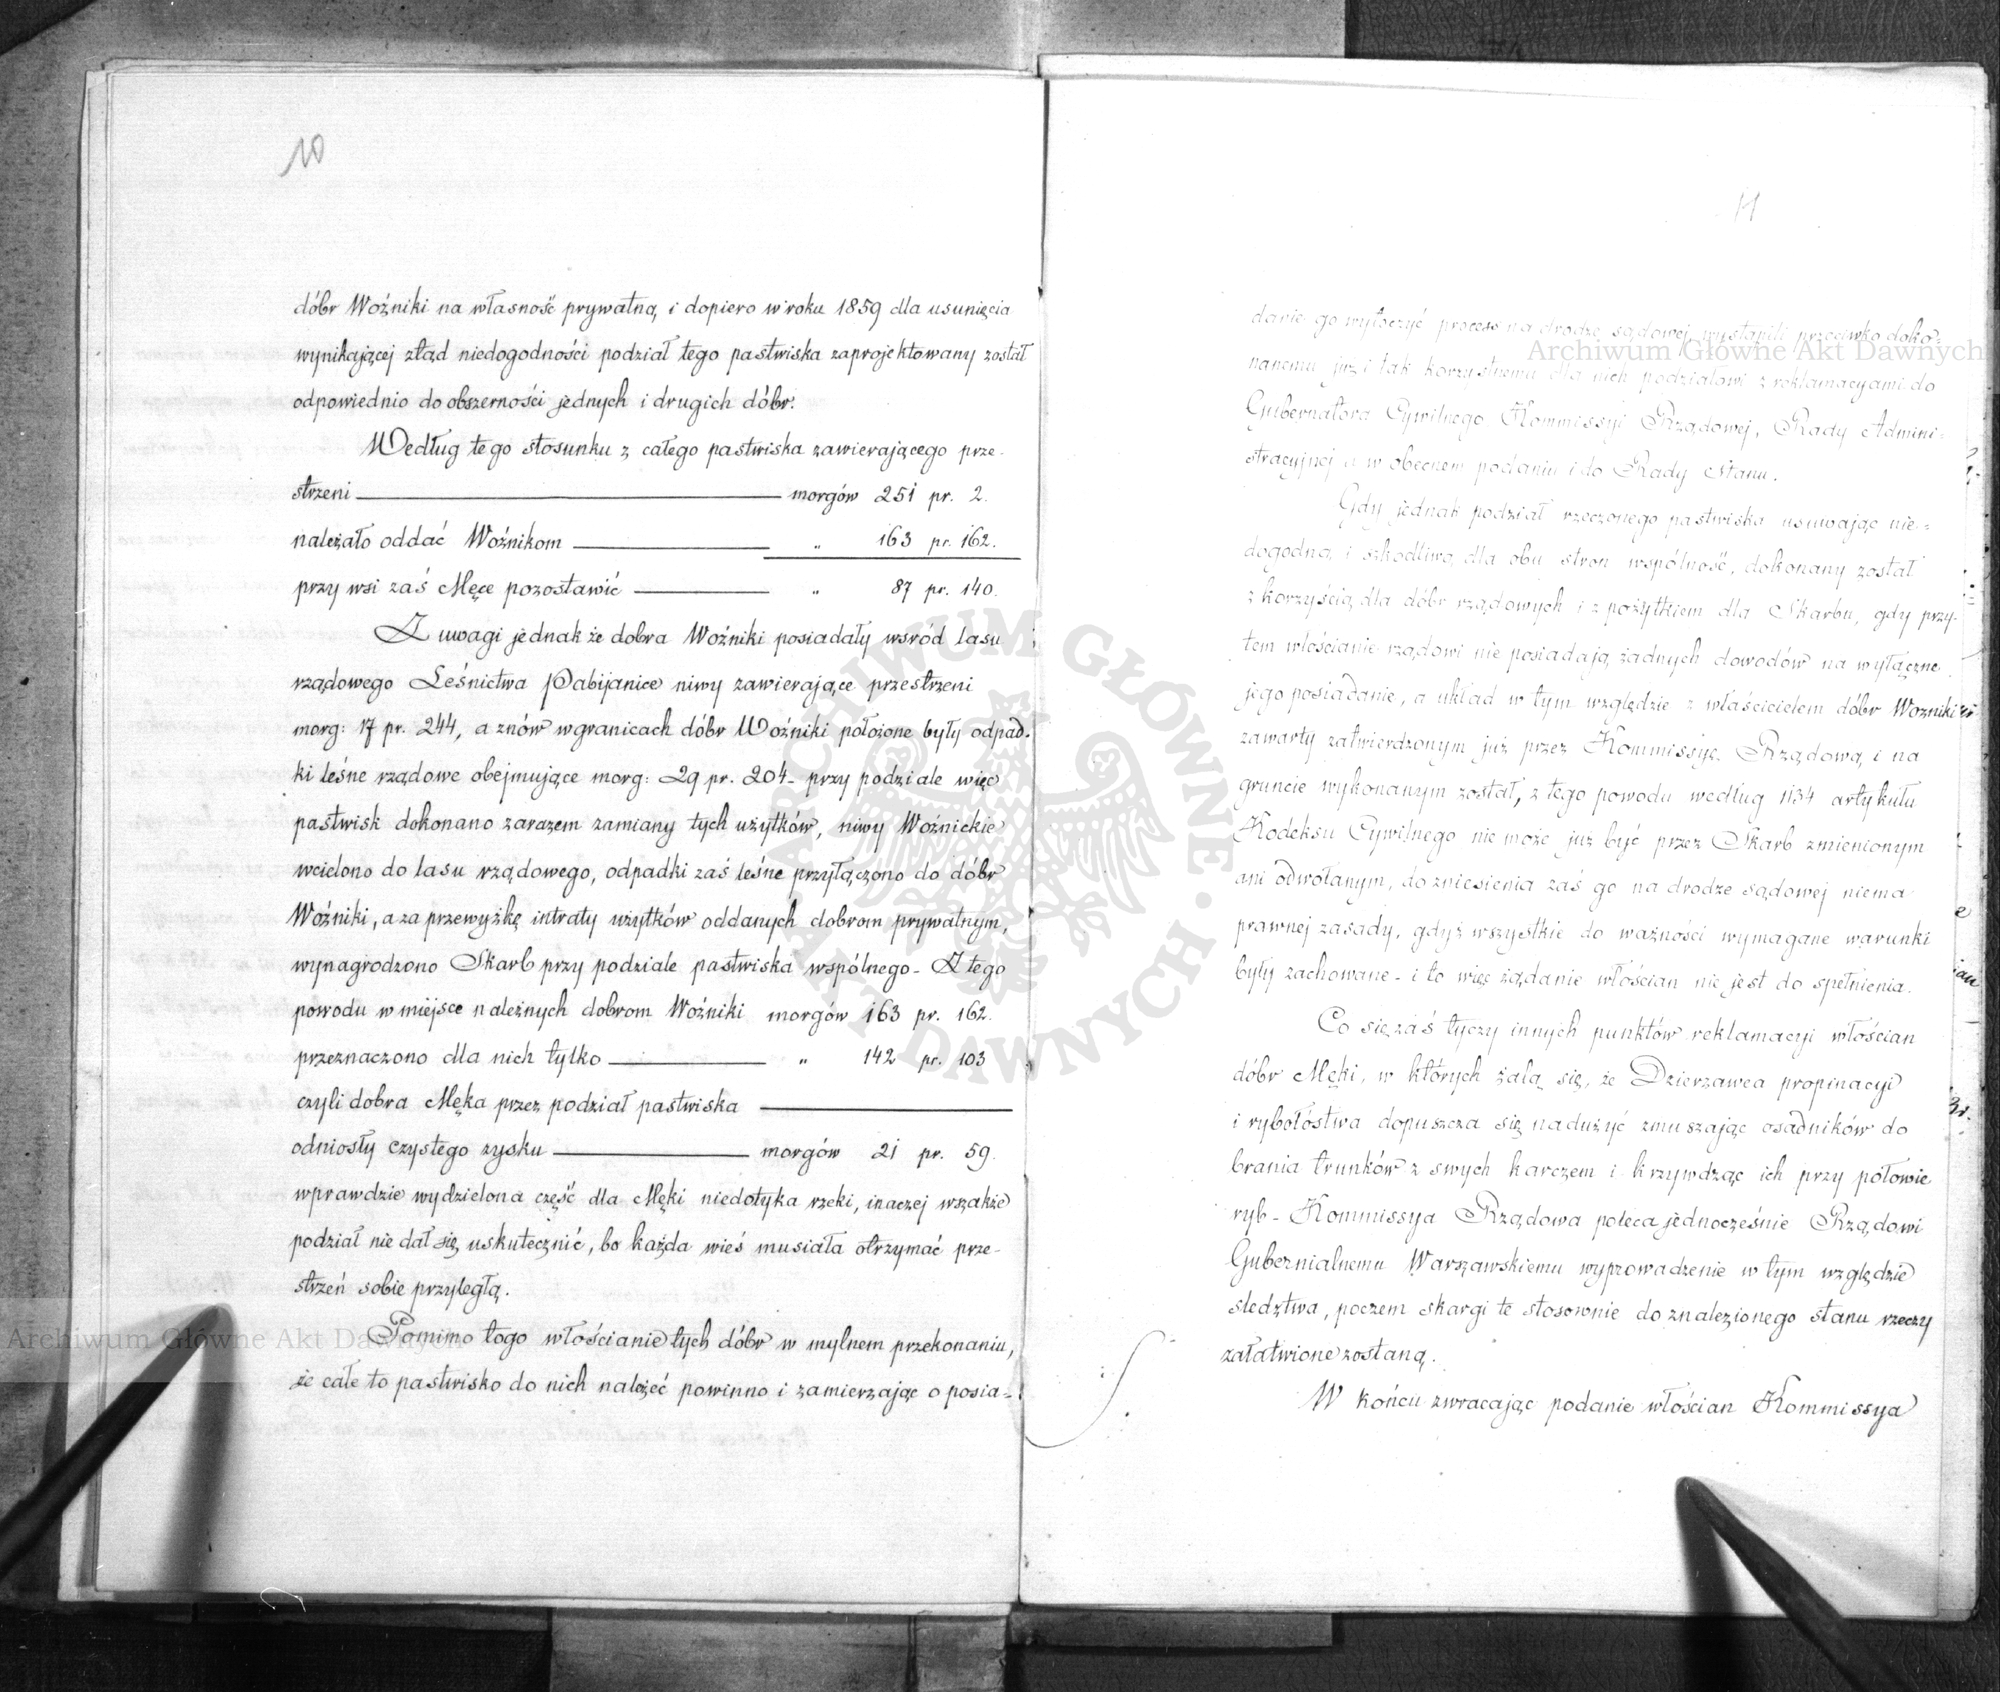 10
dóbr Woźniki na własność prywatną, i dopiero w roku 1859 dla usunięcia
wynikającej ztąd niedogodności podział tego pastwiska zaprojektowany został
odpowiednio do obszerności jednych i drugich dóbr.
Według tego stosunku z całego pastwiska zawierającego prze-
strzeni morgów 251 pr. 2.
należało oddać Woźnikom „ 163 pr. 162.
przy wsi zaś Męce pozostawić „ 87 pr. 140.
Z uwagi jednak że dobra Woźniki posiadały wsród lasu
rządowego Leśnictwa Pabijanice niwy zawierające przestrzeni
morg: 17 pr. 244, a znów w granicach dóbr Woźniki położone były odpad-
ki leśne rządowe obejmujące morg: 29 pr. 204 - przy podziale więc
pastwisk dokonano zarazem zamiany tych użytków, niwy Woźnickie
wcielono do lasu rządowego, odpadki zaś leśne przyłączono do dóbr
Woźniki, a za przewyżkę intraty użytków oddanych dobrom prywatnym,
wynagrodzono Skarb przy podziale pastwiska wspólnego - Z tego
powodu w miejsce należnych dobrom Woźniki morgów 163 pr. 162.
przeznaczono dla nich tylko „ 142 pr. 103
czyli dobra Męka przez podział pastwiska
odniosły czystego zysku morgów 21 pr. 59.
wprawdzie wydzielona część dla Męki niedotyka rzeki, inaczej wszakże
podział nie dał się uskutecznić, bo każda wieś musiała otrzymać prze-
strzeń sobie przyległą.
Pomimo tego włościanie tych dóbr w mylnem przekonaniu,
że całe to pastwisko do nich należeć powinno i zamierzając o posia-
11
danie go wytoczyć proces na drodze sądowej, wystąpili przeciwko doko-
nanemu już i tak korzystnemu dla nich podziałowi z reklamacyami do
Gubernatora Cywilnego Kommissyi Rządowej, Rady Admini-
stracyjnej a w obecnem podaniu i do Rady Stanu.
Gdy jednak podział rzeczonego pastwiska usuwając nie-
dogodną i szkodliwą dla obu stron wspólność, dokonany został
z korzyścią dla dóbr rządowych i z pożytkiem dla Skarbu, gdy przy-
tem włościanie rządowi nie posiadają żadnych dowodów na wyłączne
jego posiadanie, a układ w tym względzie z właścicielem dóbr Woźniki
zawarty zatwierdzonym już przez Kommissyę Rządową i na
gruncie wykonanym został, z tego powodu według 1134 artykułu
Kodeksu Cywilnego nie może już być przez Skarb zmienionym
ani odwołanym, do zniesienia zaś go na drodze sądowej niema
prawnej zasady, gdyż wszystkie do ważności wymagane warunki
były zachowane - i to więc żądanie włościan nie jest do spełnienia.
Co się zaś tyczy innych punktów reklamacyi włościan
dóbr Męki, w których żalą się, że Dzierżawca propinacyi
i rybołóstwa dopuszcza się nadużyć zmuszając osadników do
brania trunków z swych karczem i krzywdząc ich przy połowie
ryb - Kommissya Rządowa poleca jednocześnie Rządowi
Gubernialnemu Warszawskiemu wyprowadzenie w tym względzie
śledztwa, poczem skargi te stosownie do znalezionego stanu rzeczy
załatwione zostaną.
W końcu zwracając podanie włościan Kommissya
Archiwum Główne Akt Dawnych
Archiwum Główne Akt Dawnych
ARCHIWUM GŁÓWNE AKT DAWNYCH